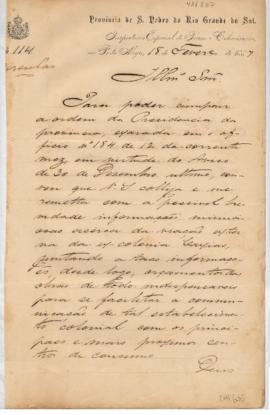 Provincia de S. Pedro do Rio Grande do Sul.
Inspectoria Especial de Terras e Colonisação
em Porto Alegre, 18 de Fevero de 1887
Nº 114
Circular
Illmo Snr.
Para poder cumprir
a ordem da Presidencia da
provincia, exarada em of-
ficio nº 184 de 12 do corrente
mez em virtude do Aviso
de 30 de Dezembro ultimo, con-
vem que V. S. collija e me
remetta com a possivel bre-
vidade informações minuci-
osas acerca da viação exter-
na da ex colonia Caxias,
juntando a taes informaçõ-
es, desde logo, orçamento das
obras de todo indispensaveis
para se facilitar a commu-
nicação de tal estabelecimen-
to colonial com os princi-
paes e mais proximos cen-
tros de consumo
Deus